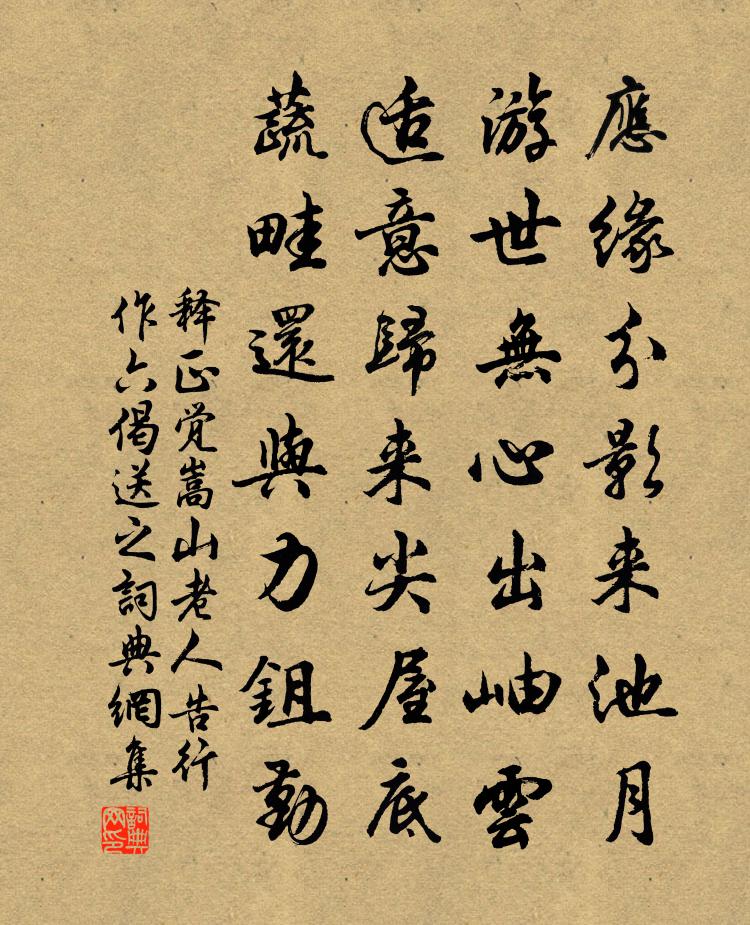 應緣分影来池月
游世無心出岫雲
适意歸来尖屋底
蔬畦還與力鉏勤
释正觉嵩山老人告行
作六偈送之詞典網集
詞典网印